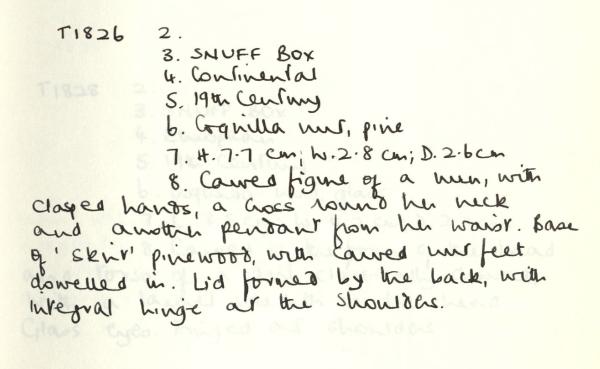 T1826 2.
3. SNUFF BOX
4. Continental
5. 19th Century
6. Coquilla nut, pine
7. H. 7.7 cm; W. 2.8 cm; D. 2.6 cm
8. Carved figure of a nun, with
clasped hands, a cross round her neck
and another pendant from her waist. Base
of 'skirt' pinewood, with carved nut feet
dowelled in. Lid formed by the back, with
integral hinge at the shoulders.
T1828 2.
3.
4.
5.
6.
Glass eyes. Hinged at shoulders